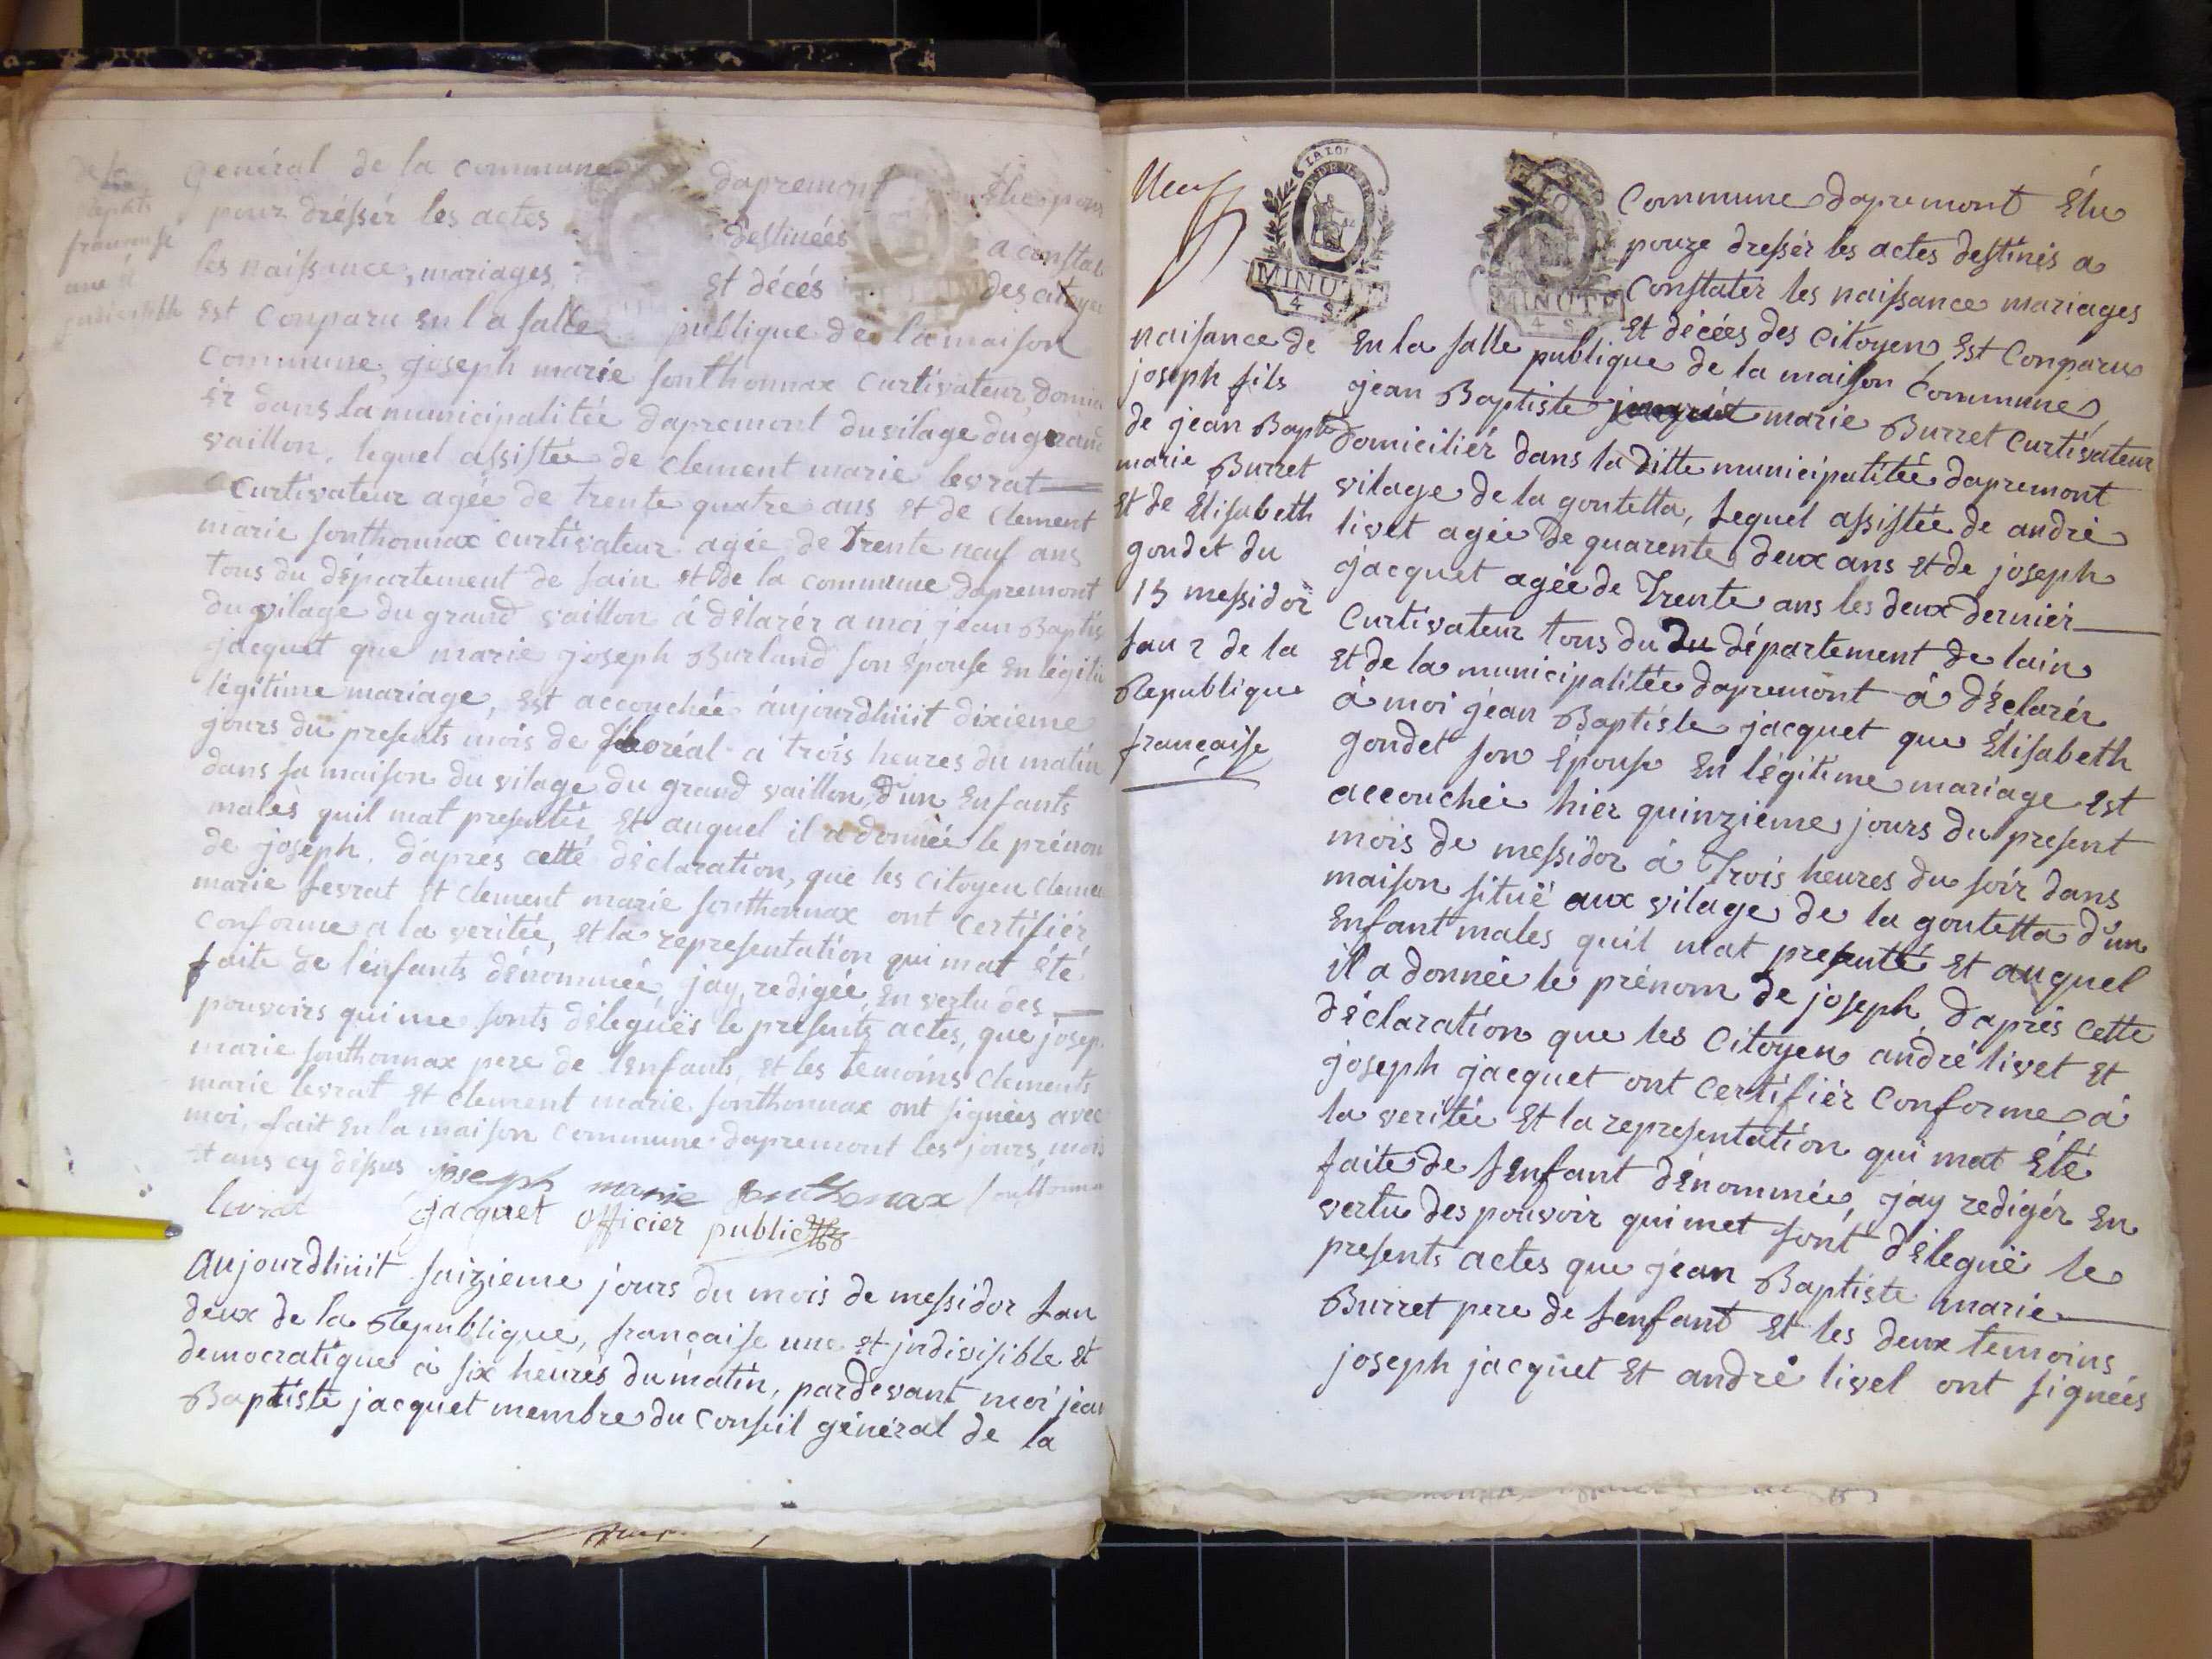 général de la commune dapremont Elue pour
pour dréssér les actes destinéés a constat
les naissance, mariages, Et décés des citoyen
Est Conparu En la salle publique de la maison
Commune, joseph marie sonthonnax Curtivateur, domici
ér dans la municipalitée dapremont du vilage du grand
vaillon, lequel assistée de clement marie levrat
Curtivateur agée de trente quatre ans Et de clement
marie sonthonnax curtivateur agée de Trente neuf ans
tous du département de lain et de la commune dapremont
du vilage du grand vaillon á délarér a moi jéan Baptis
jacquet que marie joseph Burland son Epouse En légiti
légitime mariage, Est accouchée áujourdhuit dixieme
jours du presents mois de floréal a trois heures du matin
dans sa maison du vilage du grand vaillon, d'un Enfants
males quil mat presentée Et auquel il a donnée le prénom
de joseph. d'aprés cetté déclaration, que les Citoyen cleme
marie levrat Et Clement marie sonthonnax ont Certifiér
conforme a la veritée, Et la representation qui mat été
faite de lenfants dénommée, jay redigée En vertu des
pouvoirs qui me sonts déleguës le presents actes, que josep
marie sonthonnax pere de lenfants, Et les temoins Clements
marie levrat Et clement marie sonthonnax ont signées avec
moi, fait En la maison Commune dapremont les jours, mois
Et ans cy dessus joseph marie sonthonax
levrat jacquet officier public
Aujourdhuit saizieme jours du mois de messidor lan
deux de la Republique, française une et indivisible Et
democratique à six heurés du matin, pardevant moi jéan
Baptiste jacquet membre du Conseil général de la
Neuf
LA LOI
MINUTE
4 S
MINUTE
4 S
naisance de
joseph fils
de jéan Bapt
marie Burret
Et de Elisabeth
gondet du
15 messidor
lan 2 de la
Republique
française
Commune dapremont Elu
poure dressér les actes destinés a
Constatér les naissance mariages
Et décées des Citoyen Est Conparu
En la salle publique de la maison Commune,
jéan Baptiste marie Burret Curtivateur
domiciliér dans la ditte municipalitée dapremont
vilage de la goutetta, lequel assistée de andré
livet agée de quarente deux ans Et de joseph
jacquet agée de Trente ans les deux derniér
Curtivateur tous du du département de lain
Et de la municipalitée dapremont á déclarér
á moi jéan Baptiste jacquet que Elisabeth
gondet son Epouse En légitime mariage Est
accouchée hier quinzieme jours du present
mois de messidor á Trois heures du soir dans
maison situë aux vilage de la goutetta d'un
Enfant males quil mat presenté Et auquel
il a donnée le prénom de joseph, daprés cette
déclaration que les Citoyen andré livet Et
joseph jacquet ont Certifiér Conforme á
la veritée Et la representation qui mat Eté
faite de lEnfant dénommée, jay redigér En
vertu des pouvoir qui met sont déleguë le
presents actes que jéan Baptiste marie
Burret pere de lenfant Et les deux temoins
joseph jacquet Et andré livet ont signées